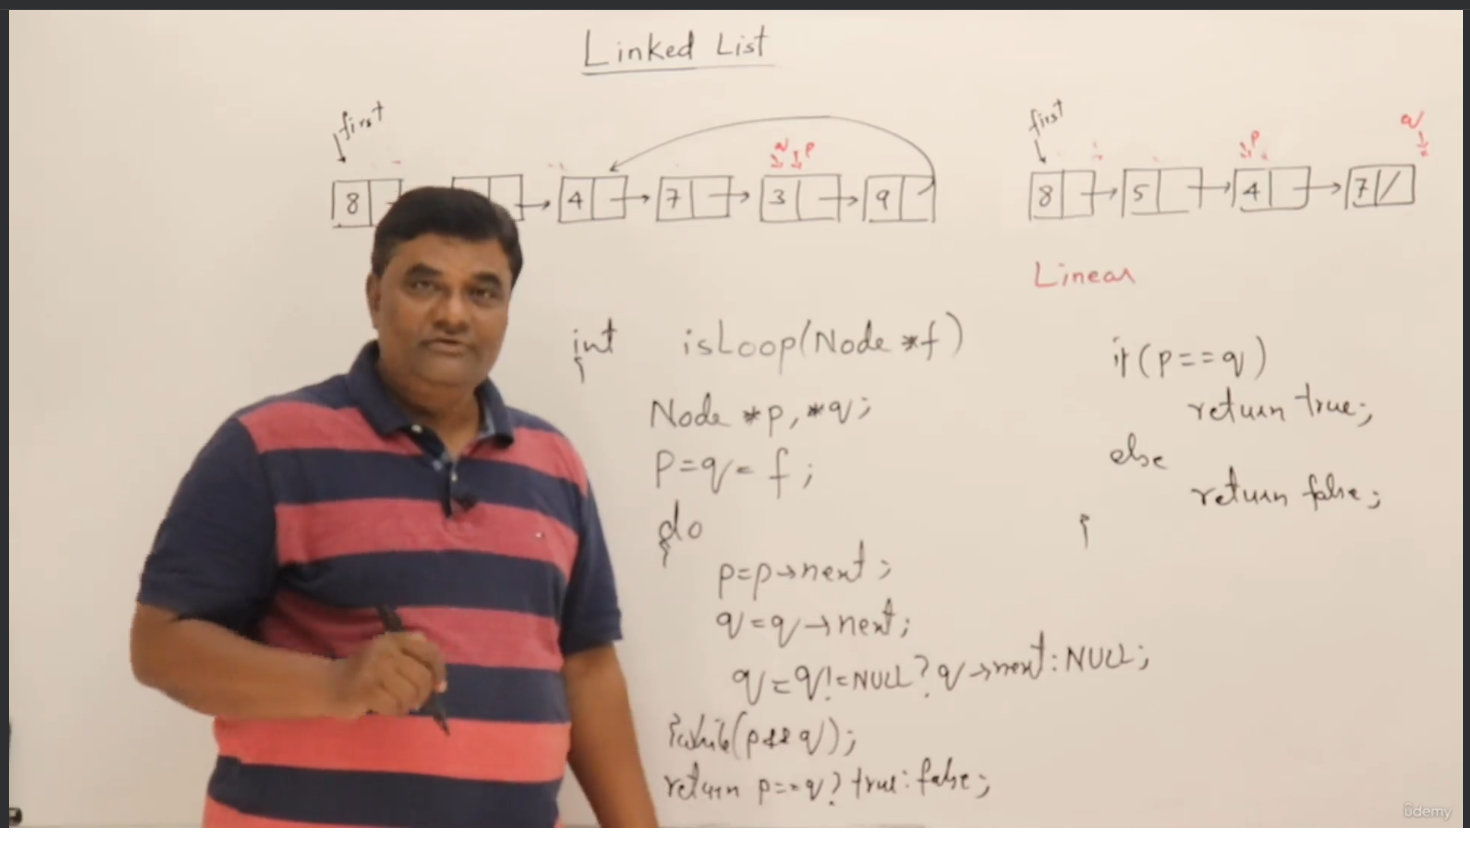 Linked List
first
8 4 7 3 9
q p
first
8 5 4 7 /
p
q
Linear
int isLoop(Node *f)
{
Node *p, *q;
p=q=f;
do
{
p=p→next;
q=q→next;
q=q!=NULL?q→next:NULL;
}while(p&&q);
return p==q?true:false;
if(p==q)
return true;
else
return false;
}
Udemy